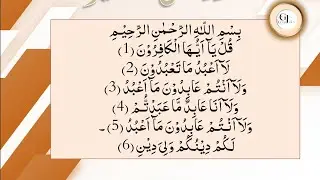 بِسْمِ اللّٰهِ الرَّحْمٰنِ الرَّحِيْمِ
قُلْ يَآ اَيُّهَا الْكَافِرُوْنَ (1)
لَآ اَعْبُدُ مَا تَعْبُدُوْنَ (2)
وَلَآ اَنْتُمْ عَابِدُوْنَ مَآ اَعْبُدُ (3)
وَلَآ اَنَا عَابِدٌ مَّا عَبَدْتُّمْ (4)
وَلَآ اَنْتُمْ عَابِدُوْنَ مَآ اَعْبُدُ (5)۔
لَكُمْ دِيْنُكُمْ وَلِىَ دِيْنِ (6)